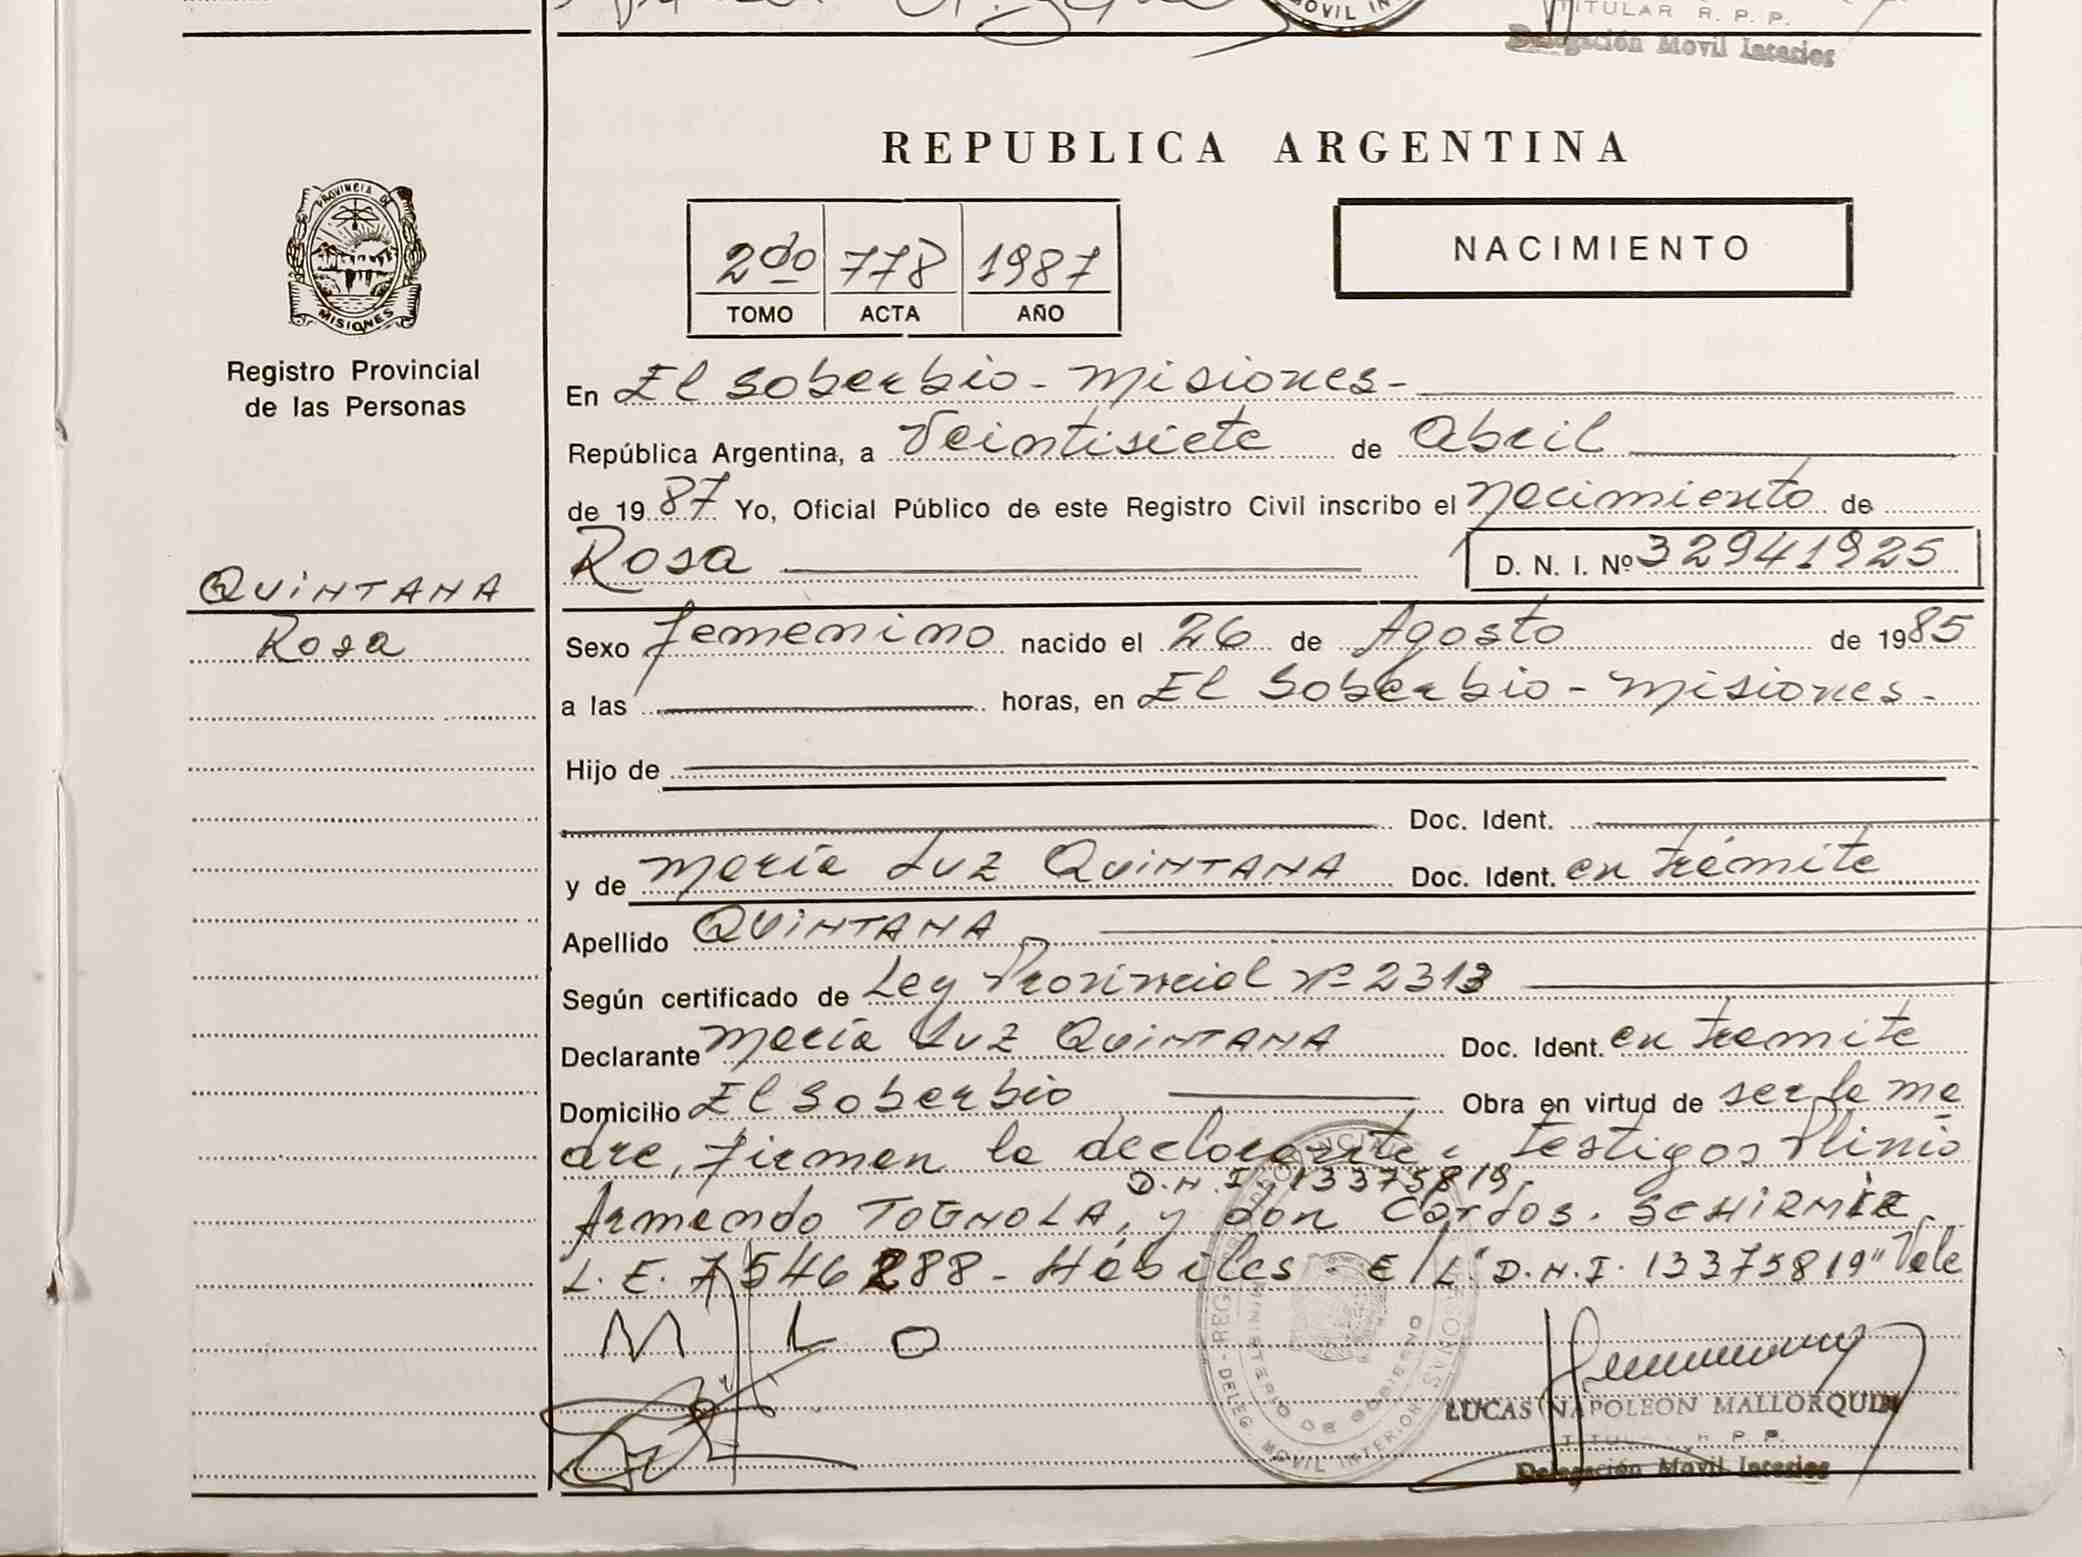 MOVIL IN
TITULAR R. P. P.
Delegación Movil Interior
REPUBLICA ARGENTINA
PROVINCIA DE
MISIONES
Registro Provincial
de las Personas
2do 778 1987
TOMO ACTA AÑO
NACIMIENTO
En El Soberbio - Misiones -
República Argentina, a Veintisiete de Abril
de 1987 Yo, Oficial Público de este Registro Civil inscribo el Nacimiento de
Rosa D. N. I. Nº 32941925
QUINTANA
Rosa
Sexo femenino nacido el 26 de Agosto de 1985
a las horas, en El Soberbio - Misiones -
Hijo de
Doc. Ident.
y de María Luz QUINTANA Doc. Ident. en trámite
Apellido QUINTANA
Según certificado de Ley Provincial Nº 2313
Declarante María Luz QUINTANA Doc. Ident. en tramite
Domicilio El Soberbio Obra en virtud de ser la ma
dre, firman la declarante, testigos Plinio
D.N.I. 13375819
Armando TOGNOLA, y don Carlos. SCHIRMER
L. E. 7546288 - Hábiles - E/L "D.N.I. 13375819" Vale
M L O
MINISTERIO DE GOBIERNO
DELEG. MOVIL INTERIOR
LUCAS NAPOLEON MALLORQUIN
TITULAR R. P. P.
Delegación Movil Interior